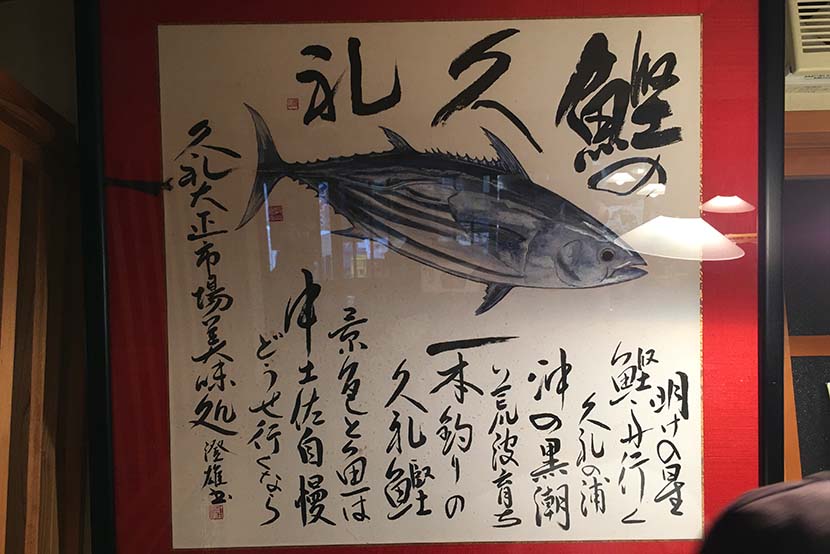 鰹の久礼
明けの星
鰹舟行く
久礼の浦
沖の黒潮
荒波育ち
一本釣りの
久礼鰹
景色と魚は
中土佐自慢
どうせ行くなら
久礼大正市場美味処
澄雄書